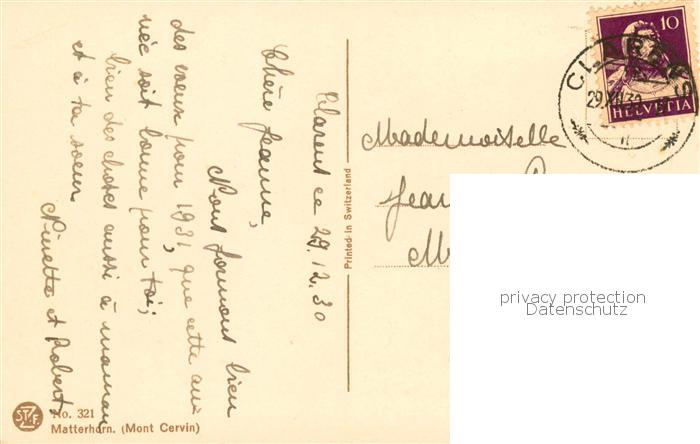 Clarens ce 29.12.30
Chère Jeanne,
Nous formons bien
des voeux pour 1931, que cette an-
née soit bonne pour toi;
bien des choses aussi à maman
et à ta soeur
Ninette et Robert
Printed in Switzerland
Mademoiselle
10
HELVETIA
CLARENS
29.XII.30
privacy protection
Datenschutz
No. 321
Matterhorn. (Mont Cervin)